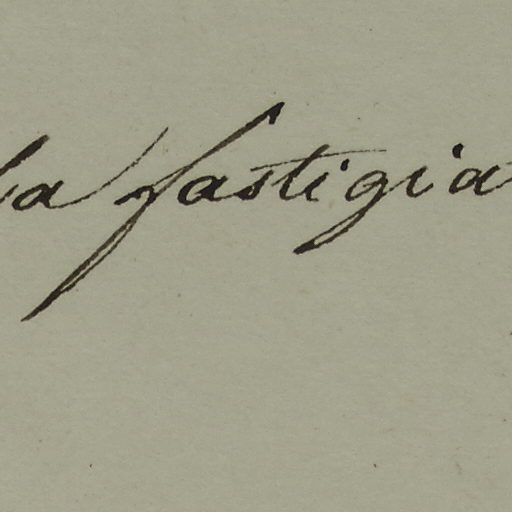 la fastigia